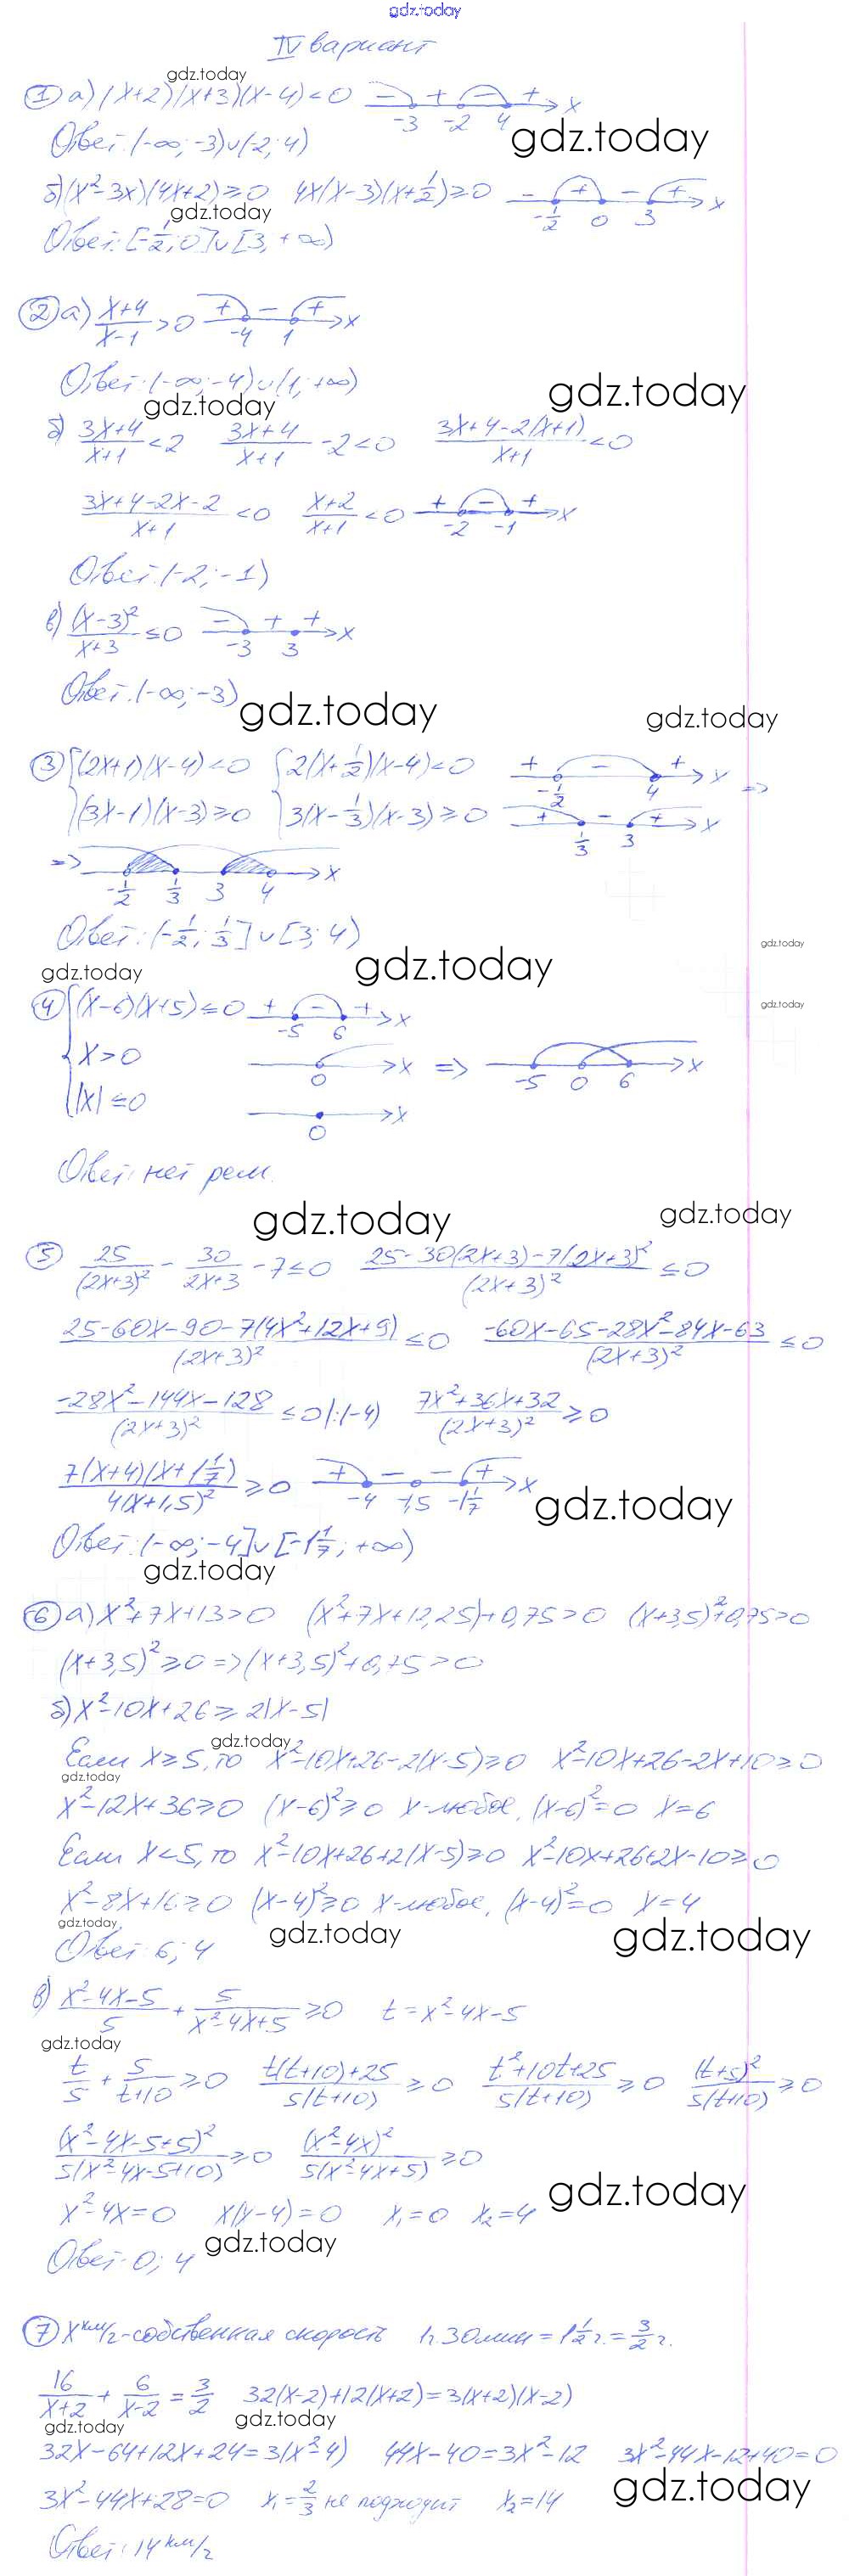 gdz.today
IV вариант
gdz.today
① а) (x+2)(x+3)(x-4)<0 - + - + x
-3 -2 4
Ответ: (-∞; -3)∪(-2; 4)
gdz.today
б) (x²-3x)(4x+2)≥0 4x(x-3)(x+1/2)≥0 - + - + x
-1/2 0 3
gdz.today
Ответ: [-1/2; 0]∪[3; +∞)
② а) (x+4)/(x-1) >0 + - + x
-4 1
Ответ: (-∞; -4)∪(1; +∞)
gdz.today
gdz.today
б) (3x+4)/(x+1) <2 (3x+4)/(x+1) -2<0 (3x+4-2(x+1))/(x+1) <0
(3x+4-2x-2)/(x+1) <0 (x+2)/(x+1) <0 + - + x
-2 -1
Ответ: (-2; -1)
в) (x-3)²/(x+3) ≤0 - + + x
-3 3
Ответ: (-∞; -3)
gdz.today
gdz.today
③ {(2x+1)(x-4)<0 {2(x+1/2)(x-4)<0 + - + x =>
-1/2 4
(3x-1)(x-3)≥0 3(x-1/3)(x-3)≥0 + - + x
1/3 3
=> x
-1/2 1/3 3 4
Ответ: (-1/2; 1/3]∪[3; 4)
gdz.today
gdz.today
gdz.today
gdz.today
④ {(x-6)(x+5)≤0 + - + x
-5 6
x>0 x => x
0 -5 0 6
|x|≤0 x
0
Ответ: нет реш.
gdz.today
gdz.today
⑤ 25/(2x+3)² - 30/(2x+3) -7≤0 (25-30(2x+3)-7(2x+3)²)/(2x+3)² ≤0
(25-60x-90-7(4x²+12x+9))/(2x+3)² ≤0 (-60x-65-28x²-84x-63)/(2x+3)² ≤0
(-28x²-144x-128)/(2x+3)² ≤0 |:(-4) (7x²+36x+32)/(2x+3)² ≥0
7(x+4)(x+1 1/7)/4(x+1,5)² ≥0 + - - + x
-4 -1,5 -1 1/7
gdz.today
Ответ: (-∞; -4]∪[-1 1/7; +∞)
gdz.today
⑥ а) x²+7x+13>0 (x²+7x+12,25)+0,75>0 (x+3,5)²+0,75>0
(x+3,5)²≥0 => (x+3,5)²+0,75>0
б) x²-10x+26≥2|x-5|
gdz.today
Если x≥5, то x²-10x+26-2(x-5)≥0 x²-10x+26-2x+10≥0
gdz.today
x²-12x+36≥0 (x-6)²≥0 x-любое, (x-6)²=0 x=6
Если x<5, то x²-10x+26+2(x-5)≥0 x²-10x+26+2x-10≥0
x²-8x+16≥0 (x-4)²≥0 x-любое, (x-4)²=0 x=4
gdz.today
gdz.today
gdz.today
Ответ: 6; 4
в) (x²-4x-5)/5 + 5/(x²-4x+5) ≥0 t=x²-4x-5
gdz.today
t/5 + 5/(t+10) ≥0 (t(t+10)+25)/5(t+10) ≥0 (t²+10t+25)/5(t+10) ≥0 (t+5)²/5(t+10) ≥0
(x²-4x-5+5)²/5(x²-4x-5+10) ≥0 (x²-4x)²/5(x²-4x+5) ≥0
gdz.today
x²-4x=0 x(x-4)=0 x₁=0 x₂=4
gdz.today
Ответ: 0; 4
⑦ x км/ч-собственная скорость 1ч.30мин=1 1/2 ч.=3/2 ч.
16/(x+2) + 6/(x-2) = 3/2 32(x-2)+12(x+2)=3(x+2)(x-2)
gdz.today
gdz.today
32x-64+12x+24=3(x²-4) 44x-40=3x²-12 3x²-44x-12+40=0
gdz.today
3x²-44x+28=0 x₁=2/3 не подходит x₂=14
Ответ: 14 км/ч